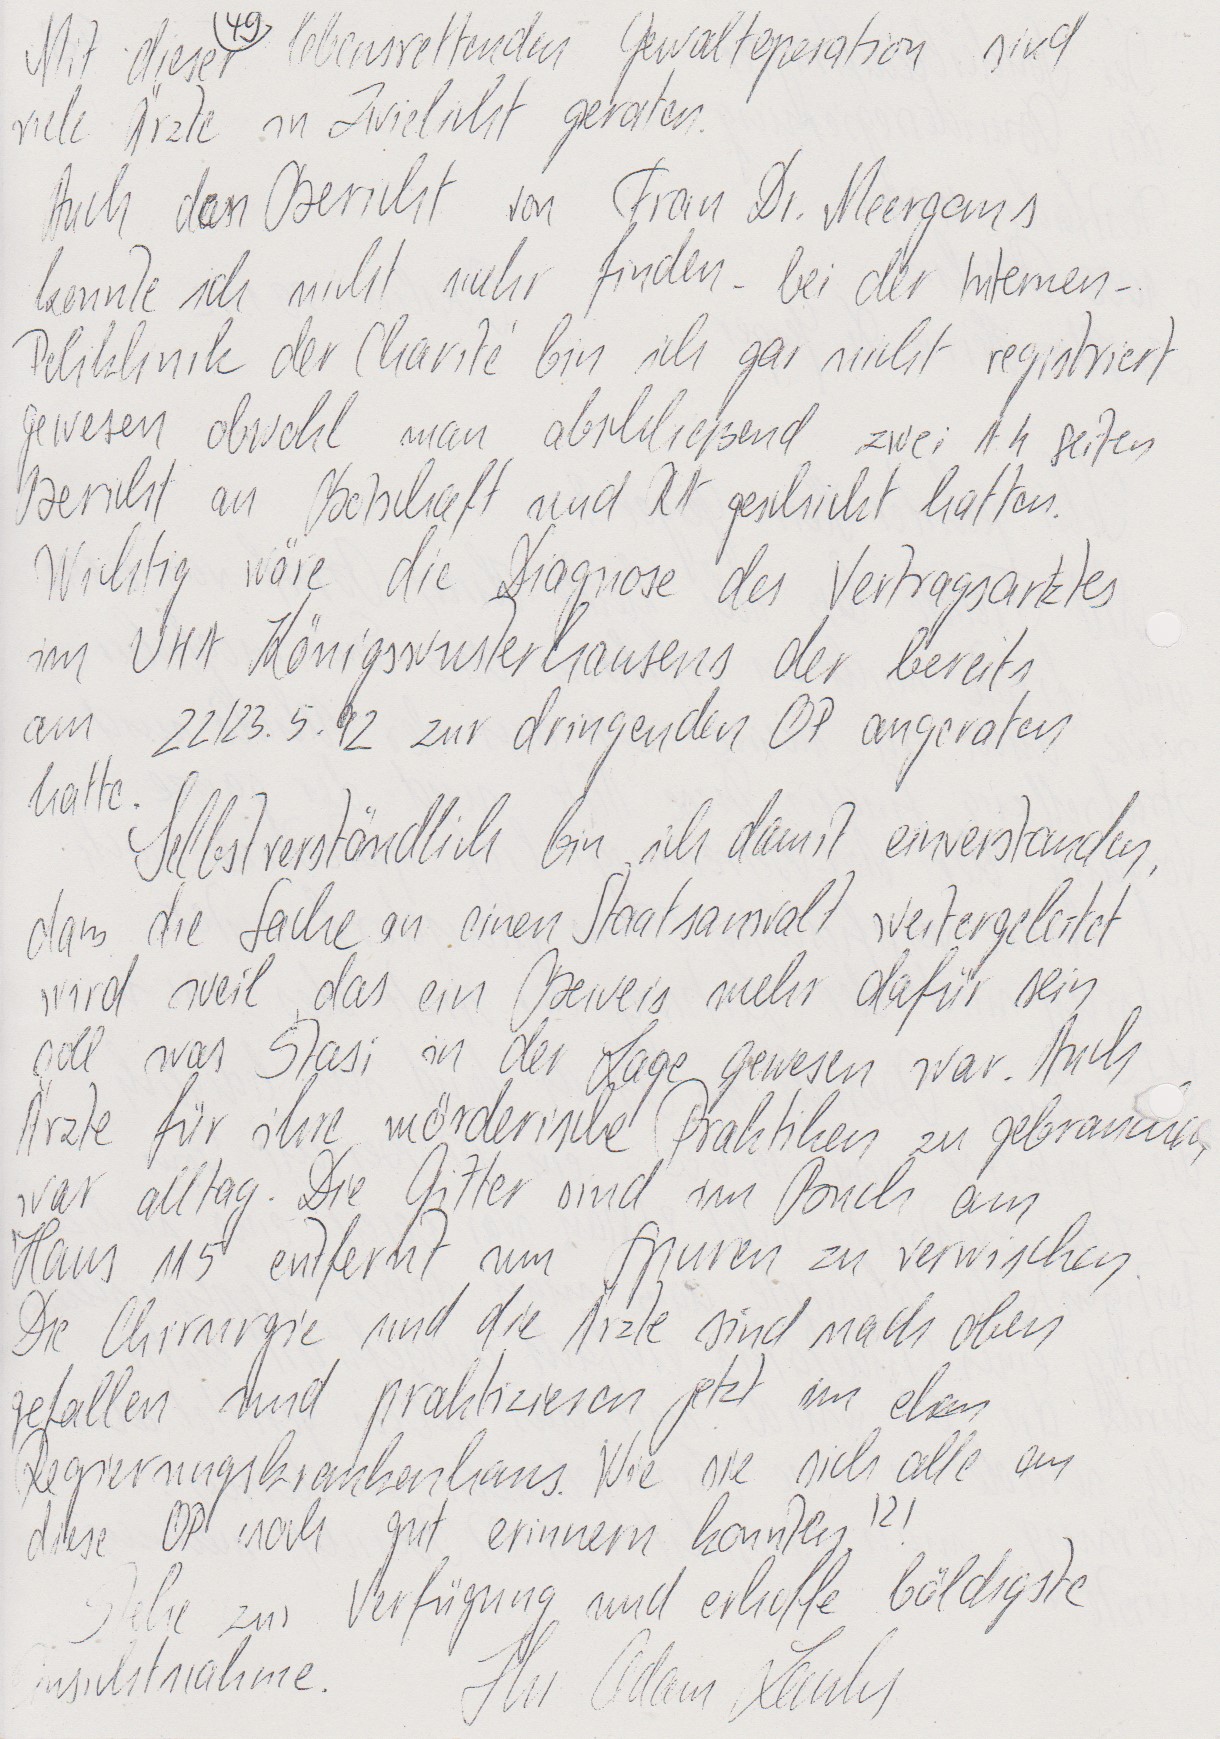 49
Mit dieser lebensrettenden Gewaltoperation sind
viele Ärzte in Zwielicht geraten.
Auch den Bericht von Frau Dr. Meergans
konnte ich nicht mehr finden - bei der Internen-
Poliklinik der Charité bin ich gar nicht registriert
gewesen obwohl man abschließend zwei A4 Seiten
Bericht an Botschaft und RA geschickt hatten.
Wichtig wäre die Diagnose des Vertragsarztes
im UHA Königswusterhausens der bereits
am 22/23.5.92 zur dringenden OP angeraten
hatte.
Selbstverständlich bin ich damit einverstanden,
dass die Sache an einen Staatsanwalt weitergeleitet
wird weil das ein Beweis mehr dafür sein
soll was Stasi in der Lage gewesen war. Auch
Ärzte für ihre mörderische Praktiken zu gebrauchen,
war alltag. Die Gitter sind im Buch am
Haus 115 entfernt um Spuren zu verwischen.
Die Chirurgie und die Ärzte sind nach oben
gefallen und praktizieren jetzt im ehem
Regierungskrankenhaus. Wie sie sich alle an
diese OP noch gut erinnern konnten!?!
Stehe zur Verfügung und erhoffe bäldigste
Einsichtnahme. Ihr Adam